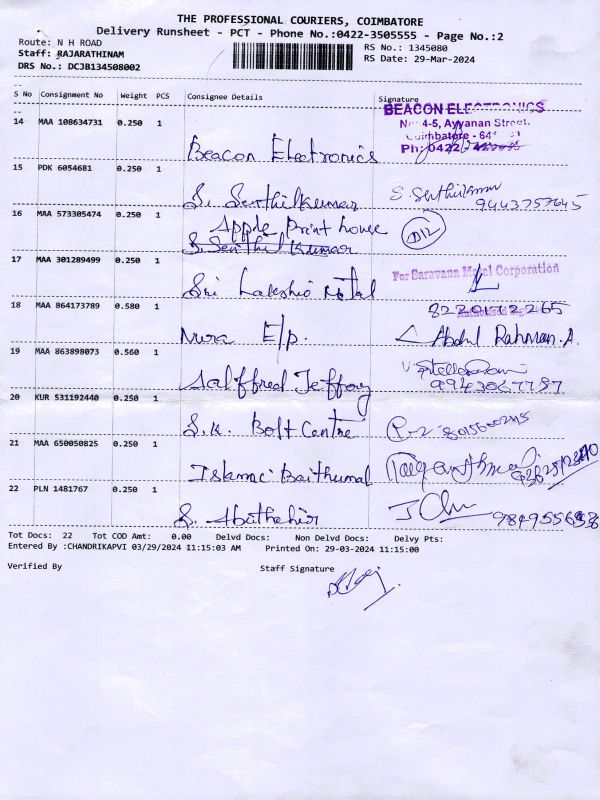 THE PROFESSIONAL COURIERS, COIMBATORE
Delivery Runsheet - PCT - Phone No.:0422-3505555 - Page No.:2
Route: N H ROAD
RS No.: 1345080
Staff: RAJARATHINAM
RS Date: 29-Mar-2024
DRS No.: DCJB134508002
S No Consignment No Weight PCS Consignee Details Signature
14 MAA 108634731 0.250 1 Beacon Electronics
BEACON ELECTRONICS
4-5, Ayyanan Street,
Coimbatore - 641
Ph: 0422
15 PDK 6054681 0.250 1 S. Senthilkumar
S. Senthilkumar
9443757645
16 MAA 573305474 0.250 1 Apple Print house
S. Senthil Kumar
D12
17 MAA 301289499 0.250 1 Sri Lakshio Metal
For Saravana Metal Corporation
18 MAA 864173789 0.580 1 Nura E/p.
8220172265
Abdul Rahman.A.
19 MAA 863898073 0.560 1 Jeffrey
9943067787
20 KUR 531192440 0.250 1 S.K. Bolt Centre
21 MAA 650050825 0.250 1 Islamic Baithumal
22 PLN 1481767 0.250 1 S. Abuthahir
Tot Docs: 22 Tot COD Amt: 0.00 Delvd Docs: Non Delvd Docs: Delvy Pts:
Entered By :CHANDRIKAPVI 03/29/2024 11:15:03 AM Printed On: 29-03-2024 11:15:00
Verified By Staff Signature